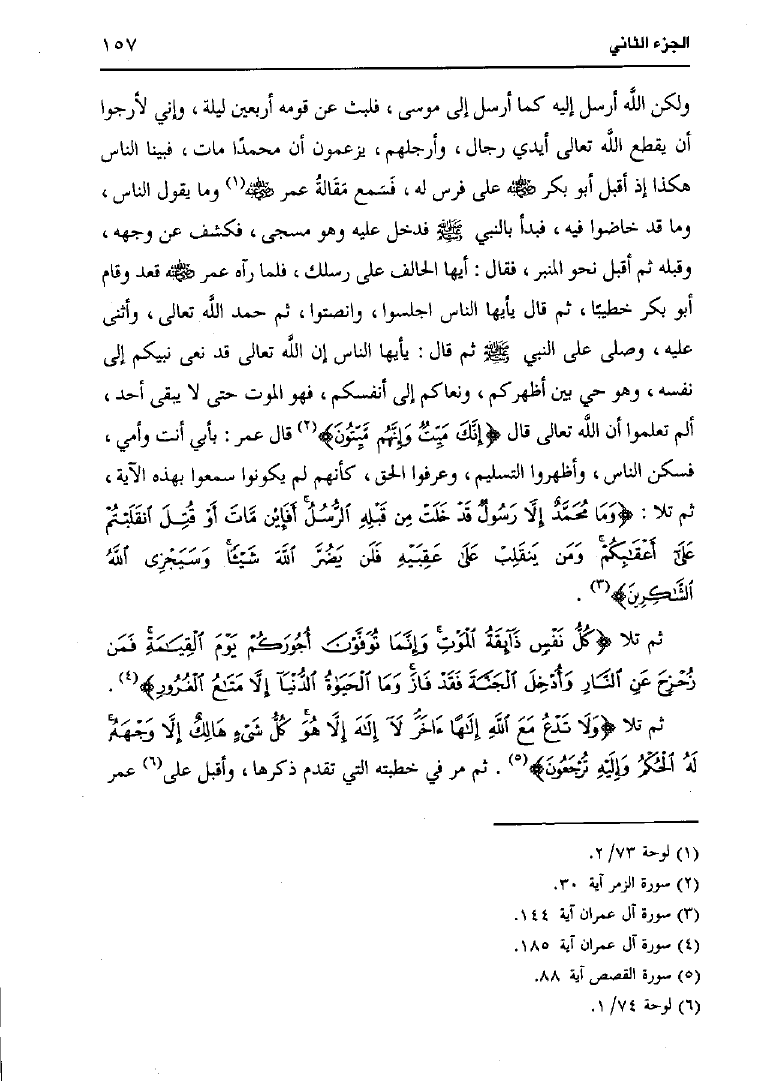 الجزء الثاني ١٥٧
ولكن اللَّه أرسل إليه كما أرسل إلى موسى ، فلبث عن قومه أربعين ليلة ، وإني لأرجوا
أن يقطع اللَّه تعالى أيدي رجال ، وأرجلهم ، يزعمون أن محمدًا مات ، فبينا الناس
هكذا إذ أقبل أبو بكر رضي الله عنه على فرس له ، فَسَمع مَقَالةُ عمر رضي الله عنه(١) وما يقول الناس ،
وما قد خاضوا فيه ، فبدأ بالنبي ﷺ فدخل عليه وهو مسجى ، فكشف عن وجهه ،
وقبله ثم أقبل نحو المنبر ، فقال : أيها الحالف على رسلك ، فلما رآه عمر رضي الله عنه قعد وقام
أبو بكر خطيبًا ، ثم قال يأيها الناس اجلسوا ، وانصتوا ، ثم حمد اللَّه تعالى ، وأثنى
عليه ، وصلى على النبي ﷺ ثم قال : يأيها الناس إن اللَّه تعالى قد نعى نبيكم إلى
نفسه ، وهو حي بين أظهركم ، ونعاكم إلى أنفسكم ، فهو الموت حتى لا يبقى أحد ،
ألم تعلموا أن اللَّه تعالى قال ﴿إِنَّكَ مَيِّتٌ وَإِنَّهُم مَّيِّتُونَ﴾(٢) قال عمر : بأبي أنت وأمي ،
فسكن الناس ، وأظهروا التسليم ، وعرفوا الحق ، كأنهم لم يكونوا سمعوا بهذه الآية ،
ثم تلا : ﴿وَمَا مُحَمَّدٌ إِلَّا رَسُولٌ قَدْ خَلَتْ مِن قَبْلِهِ ٱلرُّسُلُ ۚ أَفَإِي۟ن مَّاتَ أَوْ قُتِلَ ٱنقَلَبْتُمْ
عَلَىٰٓ أَعْقَـٰبِكُمْ ۚ وَمَن يَنقَلِبْ عَلَىٰ عَقِبَيْهِ فَلَن يَضُرَّ ٱللَّهَ شَيْـًٔا ۗ وَسَيَجْزِى ٱللَّهُ
ٱلشَّـٰكِرِينَ﴾(٣) .
ثم تلا ﴿كُلُّ نَفْسٍ ذَآئِقَةُ ٱلْمَوْتِ ۗ وَإِنَّمَا تُوَفَّوْنَ أُجُورَكُمْ يَوْمَ ٱلْقِيَـٰمَةِ ۖ فَمَن
زُحْزِحَ عَنِ ٱلنَّارِ وَأُدْخِلَ ٱلْجَنَّةَ فَقَدْ فَازَ ۗ وَمَا ٱلْحَيَوٰةُ ٱلدُّنْيَآ إِلَّا مَتَـٰعُ ٱلْغُرُورِ﴾(٤) .
ثم تلا ﴿وَلَا تَدْعُ مَعَ ٱللَّهِ إِلَـٰهًا ءَاخَرَ ۘ لَآ إِلَـٰهَ إِلَّا هُوَ ۚ كُلُّ شَىْءٍ هَالِكٌ إِلَّا وَجْهَهُۥ ۚ
لَهُ ٱلْحُكْمُ وَإِلَيْهِ تُرْجَعُونَ﴾(٥) . ثم مر في خطبته التي تقدم ذكرها ، وأقبل على(٦) عمر
(١) لوحة ٧٣/ ٢.
(٢) سورة الزمر آية ٣٠.
(٣) سورة آل عمران آية ١٤٤.
(٤) سورة آل عمران آية ١٨٥.
(٥) سورة القصص آية ٨٨.
(٦) لوحة ٧٤/ ١.